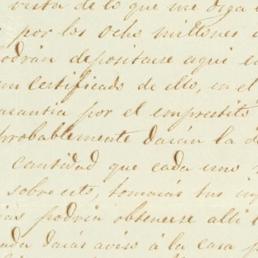 vista de lo que me diga
por los ocho millones
podrán depositarse aqui
un certificado de ello, en el
garantia por el emprestito
Probablemente darán la
cantidad que cada uno
sobre esto, tomarás tus
podria obtenerse alli
darás aviso á la casa